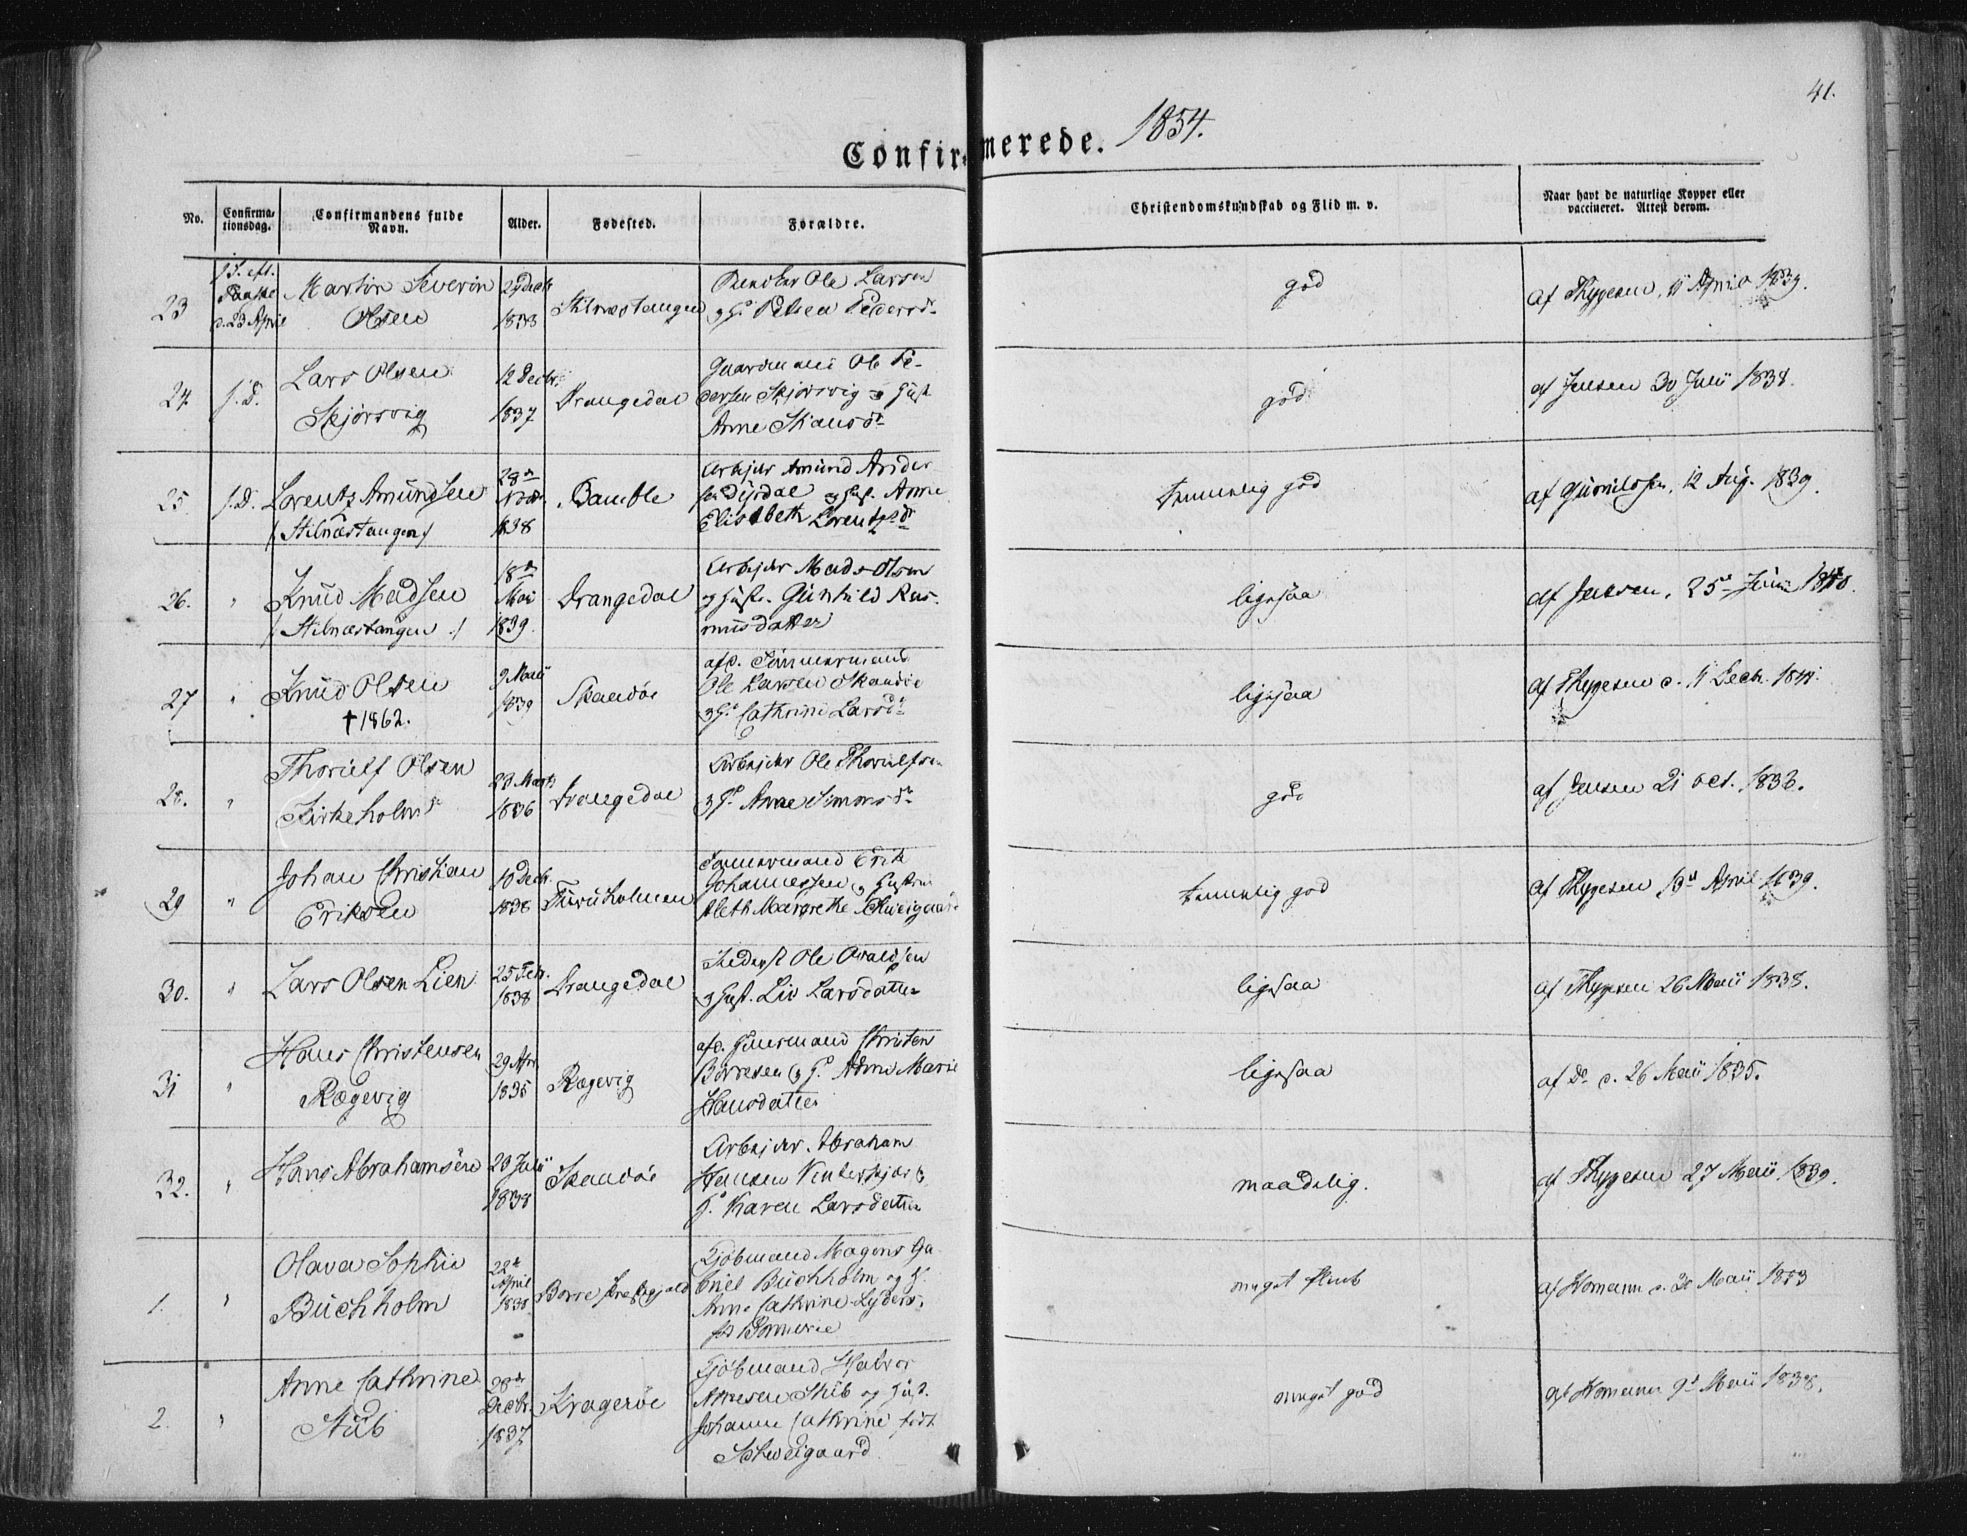 41.
Confirmerede. 1854.
No.
Confirma-
tionsdag.
Confirmandens fulde
Navn.
Alder.
Fødested.
Forældre.
Christendomskundskab og Flid m. v.
Naar havt de naturlige Kopper eller
vaccineret. Attest derom.
23
1 S. eft.
Paaske
d. 23 April
Martin Severin
Olsen
29 Decb
1838
Stilnæstangen
Ole Larsen
og H. Pedersdr
god
af Thygesen, 11 April 1839.
24
s. D.
Lars Olsen
Skjørsvig
12 Decbr.
1837
Drangedal
Gaardmand Ole Pe-
dersen Skjørsvig og Hust.
Anne
god
af Jensen 30 Julii 1838.
25
s. D.
Lorents Amundsen
/ Stilnæstangen /
28de
1838
Bamble
Arbejder Amund Ander
sen og Hust. Anne
Elisabeth Lorentsdr
temmelig god
af 12 Aug. 1839.
26.
"
Knud Madsen
/ Stilnæstangen /
18de
Mai
1839.
Drangedal
Arbejder Mads Olsen
og Hustr. Gunhild Ras-
musdatter
ligesaa
af Jensen, 25de 1840.
27
"
Knud Olsen
† 1862.
9 Maii
1839
Skaadøe
afd. Tømmermand
Ole Larsen Skaadøe
og H. Cathrine Larsdr
ligesaa
af Thygesen d. 11 Decbr.
28.
"
Thoriulf Olsen
Kirkeholm
1836
Drangedal
Arbejder Ole Thoriulfsen
og H. Anne Simonsdr
god
af Jensen 21 Oct.
29
"
Johan Christian
Eriksen
10 Decbr.
1838
Furuholmen
Tømmermand Erik
Johannessen og Hustru
Aleth Margrethe Schweigaard
temmelig god
af Thygesen 19de April 1839.
30.
"
Lars Olsen Lien
25 Febr.
1838
Drangedal
Ole
og Hust. Liv Larsdatter
ligesaa
af Thygesen 26 Maii 1838.
31
"
Hans Christensen
Rægevig
29 Apr.
1835
Rægevig
afd. Christen
Børresen og H. Anne Marie
Hansdatter
ligesaa
af Do d. 26 Maii 1835.
32.
"
Hans Abrahamsen
23 Julii
1838
Skaadøe
Arbejder Abraham
Hansen Vinterkjær &
H. Karen Larsdatter
maadelig.
af Thygesen 27 Maii 1839.
1.
"
Olava Sophie
Buchholm
22de
April
1838
Borre Præstegjeld
Kjøbmand Magens Ga-
briel Buchholm og H.
Anne Cathrine
meget
af Homann d. 30 Maii
2.
"
Anne Cathrine
Stub
28de
Decbr.
1837
Kragerøe
Kjøbmand Halvor
Stub og Hust.
Johanne Cathrine født
Schweigaard
meget god
af Homann 9de Maii 1838.